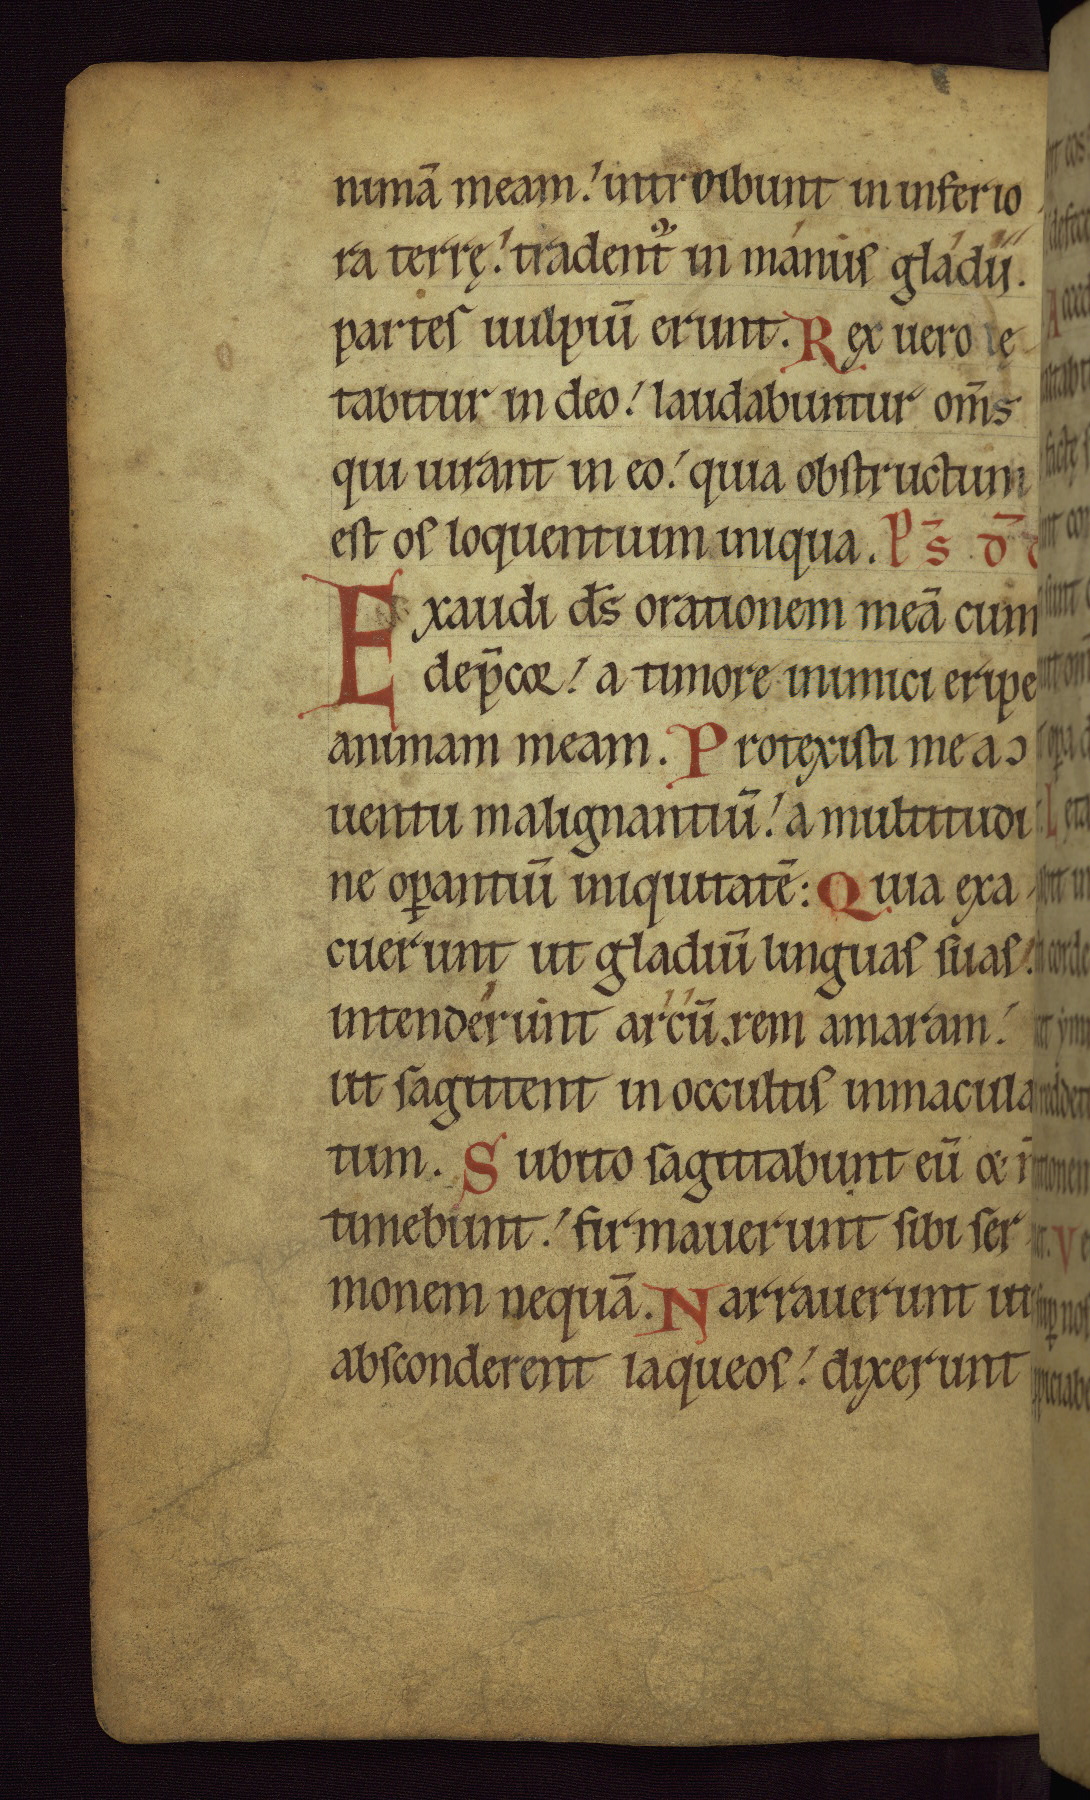 nimā meam. introibunt in inferio
ra terrę. tradent᷑ in manus gladii.
partes uulpiū erunt. Rex uero lę
tabitur in deo. laudabuntur om̄s
qui iurant in eo. quia obstructum
est os loquentium iniqua. ps̄ d̄
Exaudi ds̄ orationem meā cum
dep̄cor. a timore inimici eripe
animam meam. Protexisti me a ↄ
uentu malignantiū. a multitudi
ne oꝑantiū iniquitatē: Quia exa
cuerunt ut gladiū linguas suas.
intenderunt arcū. rem amaram.
ut sagittent in occultis inmacula
tum. Subito sagittabunt eū & n̄
timebunt. firmauerunt sibi ser
monem nequā. Narrauerunt ut
absconderent laqueos. dixerunt